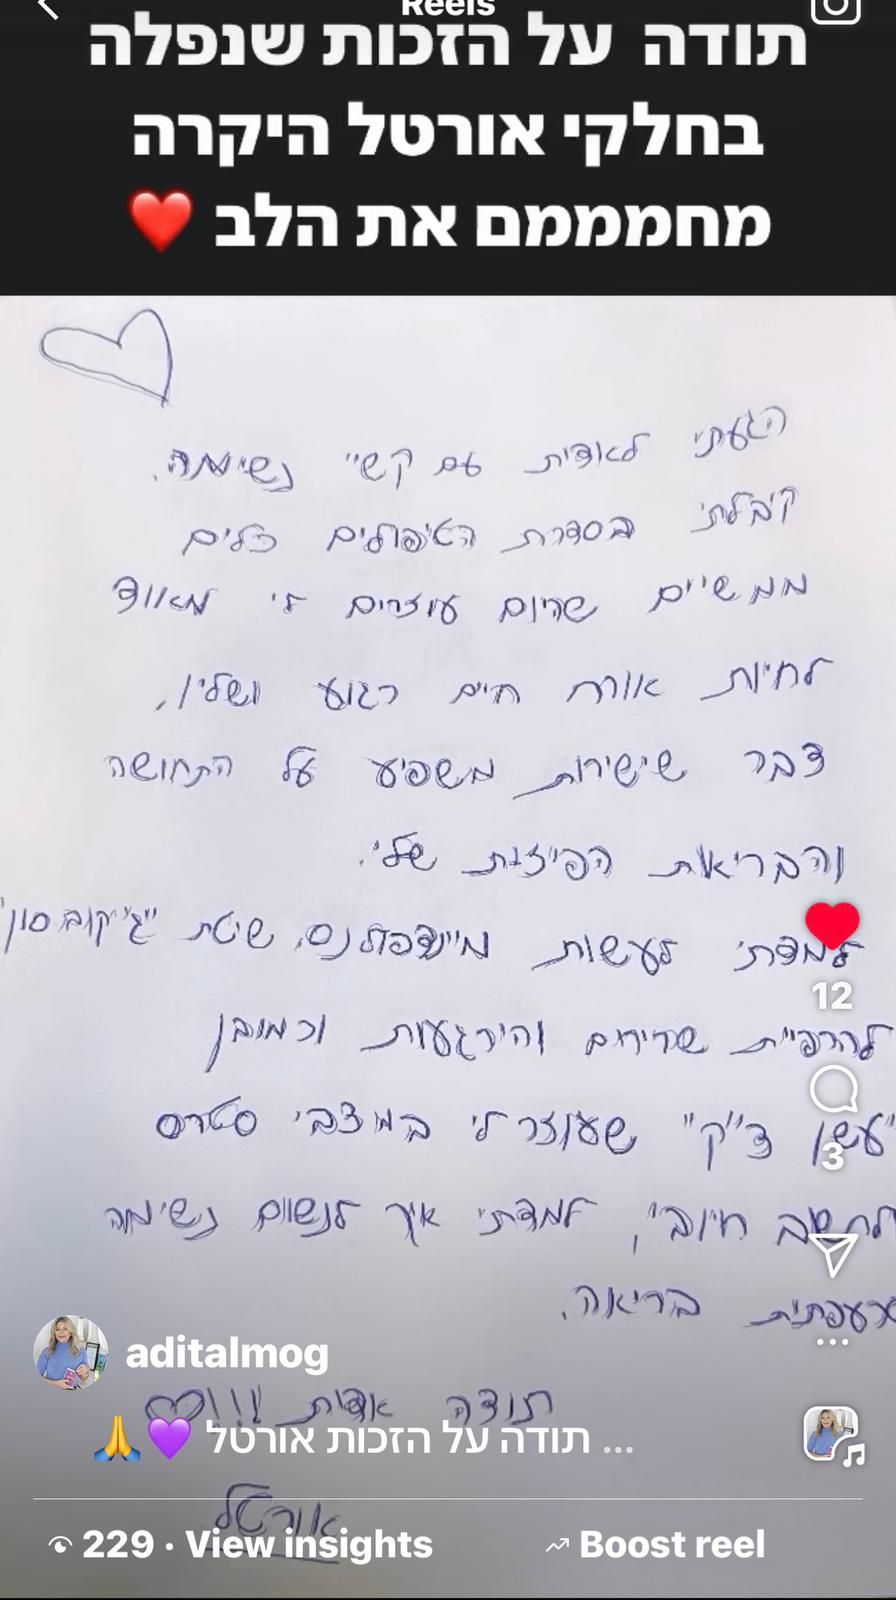 Reels
תודה על הזכות שנפלה
בחלקי אורטל היקרה
מחמממם את הלב ❤️
הגעתי לאדית עם קשיי נשימה.
קיבלתי בסדרת הטיפולים כלים
ממשיים שהינם עוזרים לי מאווד
לחיות אורח חיים רגוע ושליו,
דבר שישירות משפיע על התחושה
והבריאות הפיזית שלי.
למדתי לעשות מיינדפולנס, שיטת "ג'יקובסון"
להרפיית שרירים והירגעות וכמובן
"עשן ד"ק" שעוזר לי במצבי סטרס
לחשוב חיובי, למדתי איך לנשום נשימה
סרעפתית בריאה.
תודה אדית !!!
אורטל
12
3
aditalmog
תודה על הזכות אורטל 💜🙏 ...
229 · View insights
Boost reel